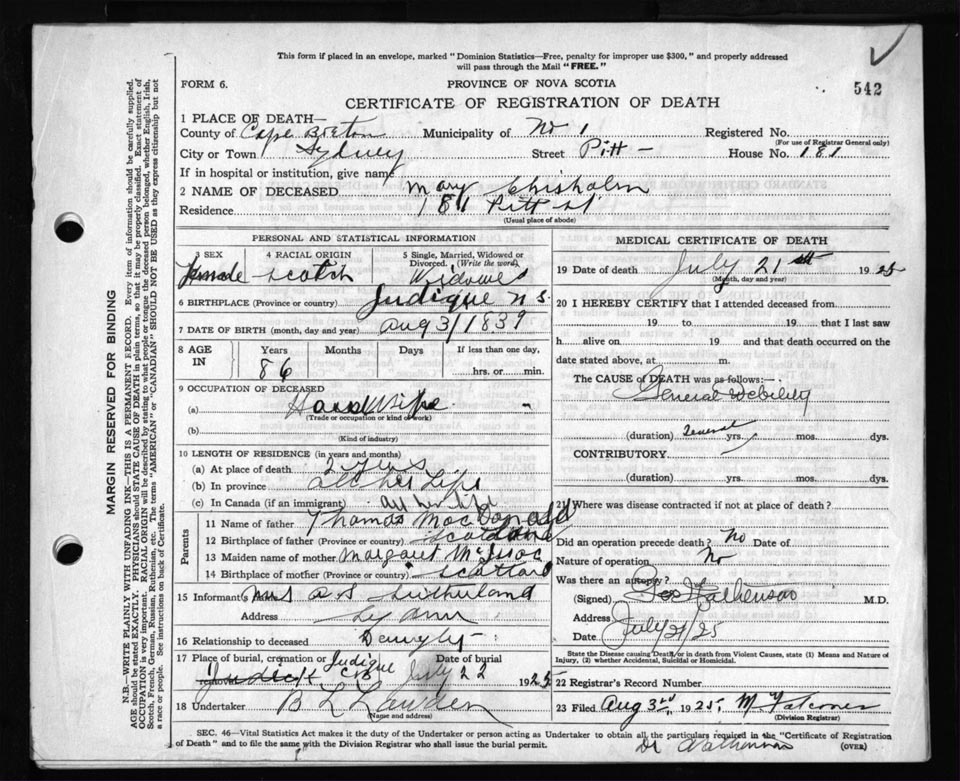 This form if placed in an envelope, marked "Dominion Statistics—Free, penalty for improper use $300," and properly addressed
will pass through the Mail "FREE."
FORM 6.
PROVINCE OF NOVA SCOTIA
542
CERTIFICATE OF REGISTRATION OF DEATH
1 PLACE OF DEATH—
County of Cape Breton Municipality of No 1 Registered No.
(For use of Registrar General only)
City or Town Sydney Street Pitt — House No. 181
If in hospital or institution, give name
2 NAME OF DECEASED Mary Chisholm
Residence 181 Pitt St
(Usual place of abode)
PERSONAL AND STATISTICAL INFORMATION
3 SEX 4 RACIAL ORIGIN 5 Single, Married, Widowed or Divorced. (Write the word)
Female Scotch Widowed
6 BIRTHPLACE (Province or country) Judique N S.
7 DATE OF BIRTH (month, day and year) Aug 3/1839
8 AGE IN Years Months Days If less than one day,
86 hrs. or min.
9 OCCUPATION OF DECEASED
(a) HouseWife
(Trade or occupation or kind of work)
(b)
(Kind of industry)
10 LENGTH OF RESIDENCE (in years and months)
(a) At place of death 2 years
(b) In province all her life
(c) In Canada (if an immigrant) all her life
Parents
11 Name of father Thomas MacDonald
12 Birthplace of father (Province or country) Scotland
13 Maiden name of mother Margaret McIsaac
14 Birthplace of mother (Province or country) Scotland
15 Informant Mrs Sutherland
Address
16 Relationship to deceased
17 Place of burial, cremation or removal Judique C B Date of burial
July 22 1925
18 Undertaker B L
(Name and address)
MEDICAL CERTIFICATE OF DEATH
19 Date of death July 21st 1925
(Month, day and year)
20 I HEREBY CERTIFY that I attended deceased from
19 to 19 that I last saw
h alive on 19 and that death occurred on the
date stated above, at m.
The CAUSE of DEATH was as follows:—
General Debility
(duration) Several yrs. mos. dys.
CONTRIBUTORY
(duration) yrs. mos. dys.
21 Where was disease contracted if not at place of death?
Did an operation precede death? No Date of
Nature of operation No
Was there an autopsy?
(Signed) M.D.
Address
Date July 21/25
State the Disease causing Death, or in death from Violent Causes, state (1) Means and Nature of
Injury, (2) whether Accidental, Suicidal or Homicidal.
22 Registrar's Record Number
23 Filed Aug 3rd, 1925,
(Division Registrar)
SEC. 46—Vital Statistics Act makes it the duty of the Undertaker or person acting as Undertaker to obtain all the particulars required in the "Certificate of Registration
of Death" and to file the same with the Division Registrar who shall issue the burial permit.
Dr
(OVER)
MARGIN RESERVED FOR BINDING
N.B.—WRITE PLAINLY WITH UNFADING INK—THIS IS A PERMANENT RECORD. Every item of information should be carefully supplied.
AGE should be stated EXACTLY. PHYSICIANS should STATE CAUSE OF DEATH in plain terms, so that it may be properly classified. Exact statement of
OCCUPATION is very important. RACIAL ORIGIN will be described by stating to what people or tongue the deceased person belonged, whether English, Irish,
Scotch, French, German, Russian, Ruthenian, etc. The terms "AMERICAN" or "CANADIAN" SHOULD NOT BE USED as they express citizenship but not
a race or people. See instructions on back of Certificate.